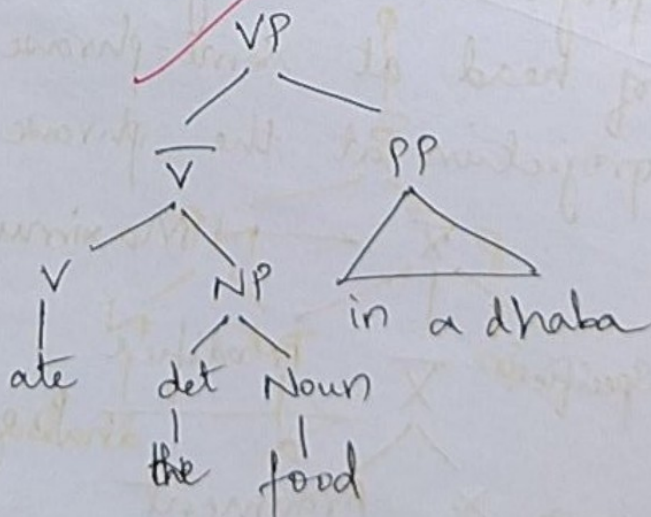 VP
V̅ PP
V NP in a dhaba
ate det Noun
the food